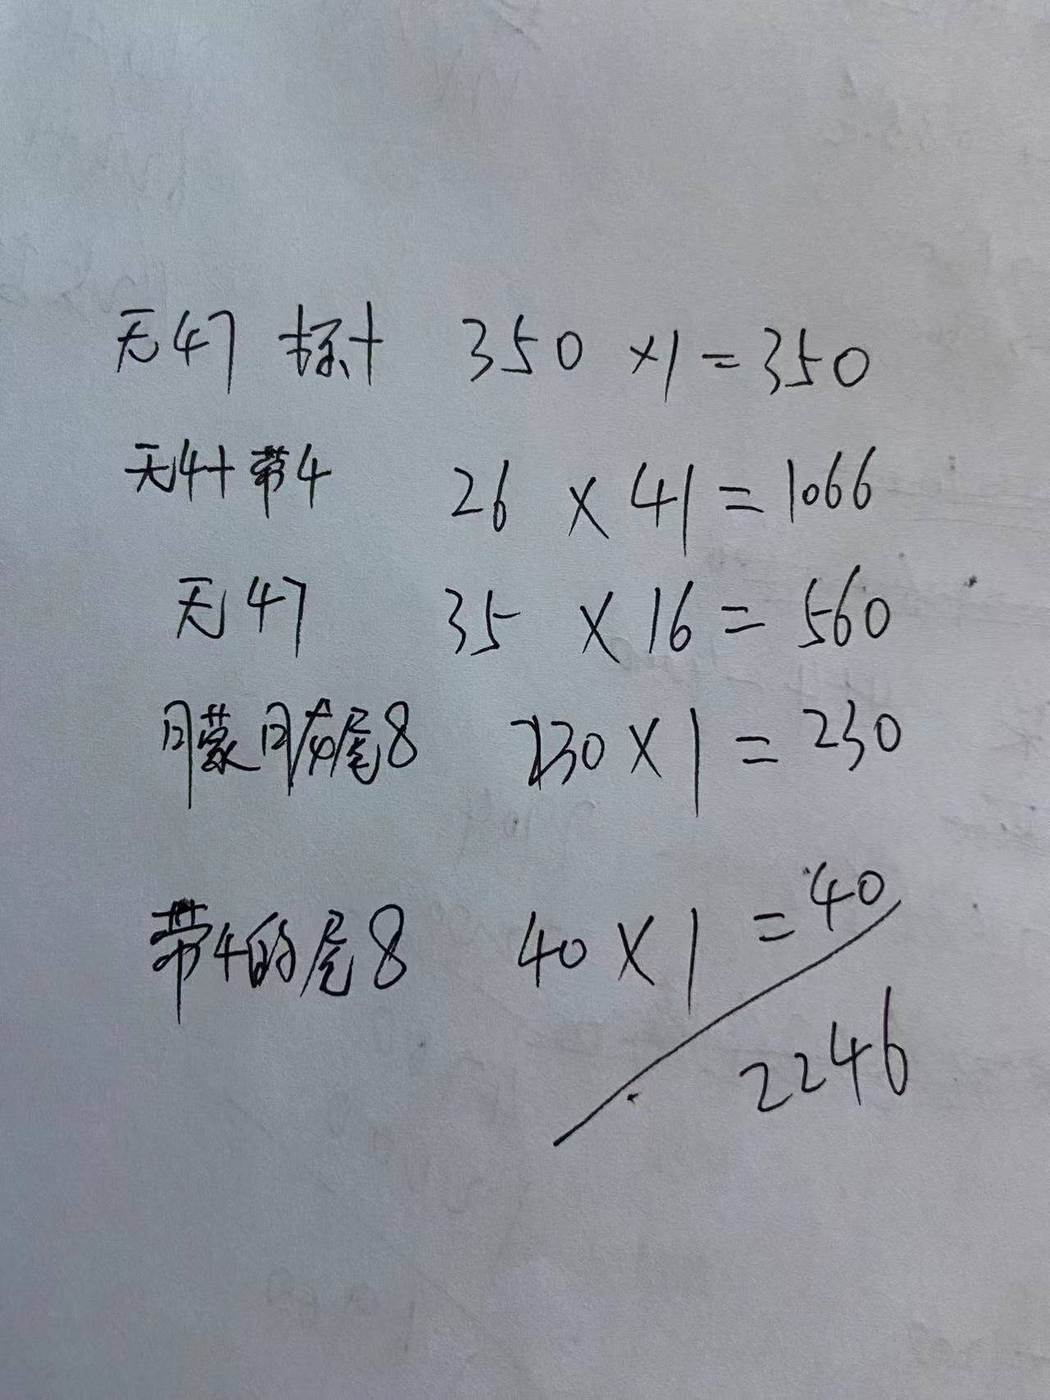 无47 标十 350 ×1=350
无4十带4 26 × 41=1066
无47 35 × 16= 560
朦胧尾8 230×1=230
带4的尾8 40×1=40
2246